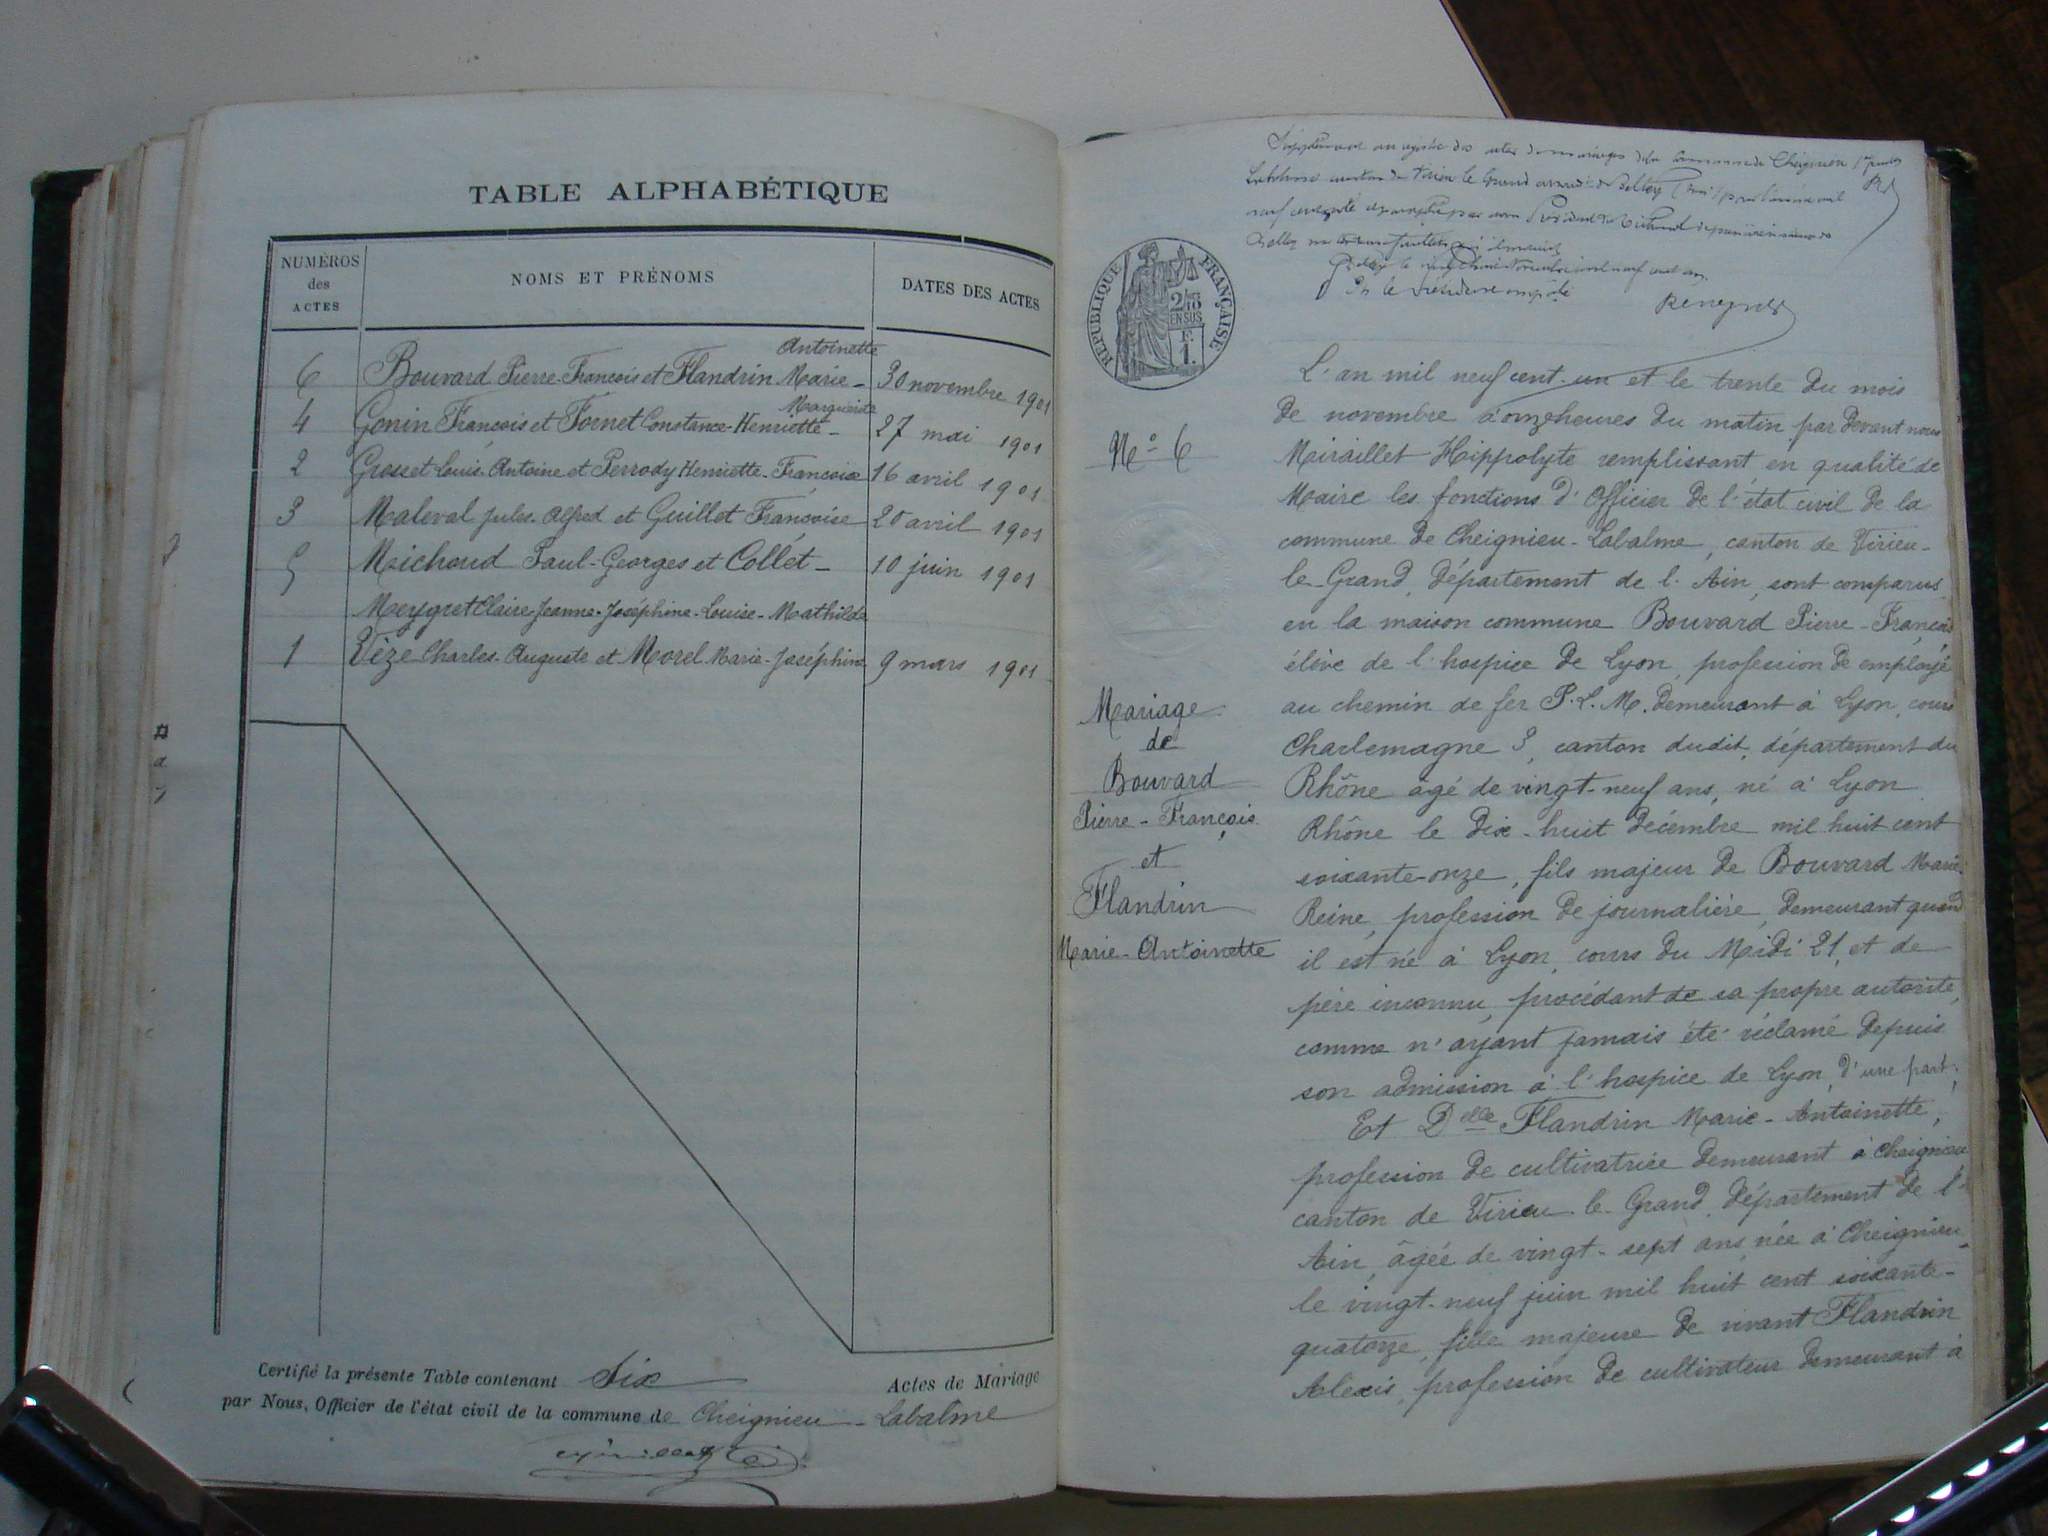 TABLE ALPHABÉTIQUE
NUMÉROS
des
ACTES
NOMS ET PRÉNOMS
DATES DES ACTES
Antoinette
6 Bouvard Pierre-François et Flandrin Marie- 30 novembre 1901
Marguerite
4 Gonin François et Fornet Constance-Henriette- 27 mai 1901
2 Grosset Louis-Antoine et Perrody Henriette-Françoise 16 avril 1901
3 Maleval Jules-Alfred et Guillet Françoise 20 avril 1901
5 Michoud Paul-Georges et Collet- 10 juin 1901
Meygret Claire-Jeanne-Joséphine-Louise-Mathilde
1 Vèze Charles-Auguste et Morel Marie-Joséphine 9 mars 1901
Certifié la présente Table contenant Six Actes de Mariage
par Nous, Officier de l'état civil de la commune de Cheignieu-Labalme
Supplément au registre des actes de mariages de la commune de Cheignieu
Labalme canton de Virieu le Grand arrond. de Belley
neuf cent
Belley
Belley le
RÉPUBLIQUE FRANÇAISE
2/10
EN SUS
F.
1.
N° 6
Mariage
de
Bouvard
Pierre-François
et
Flandrin
Marie-Antoinette
L'an mil neuf cent-un et le trente du mois
de novembre à onze heures du matin par devant nous
Miraillet Hippolyte remplissant en qualité de
Maire les fonctions d'Officier de l'état civil de la
commune de Cheignieu-Labalme, canton de Virieu-
le-Grand, département de l'Ain, sont comparus
en la maison commune Bouvard Pierre-François
élève de l'hospice de Lyon, profession de employé
au chemin de fer P.L.M. demeurant à Lyon, cours
Charlemagne 3, canton dudit, département du
Rhône âgé de vingt-neuf ans, né à Lyon
Rhône le dix-huit décembre mil huit cent
soixante-onze, fils majeur de Bouvard Marie-
Reine, profession de journalière, demeurant quand
il est né à Lyon, cours du Midi 21, et de
père inconnu, procédant de sa propre autorité,
comme n'ayant jamais été réclamé depuis
son admission à l'hospice de Lyon, d'une part;
Et Delle Flandrin Marie-Antoinette,
profession de cultivatrice demeurant à Cheignieu
canton de Virieu-le-Grand, département de l'
Ain, âgée de vingt-sept ans, née à Cheignieu-
le vingt-neuf juin mil huit cent soixante-
quatorze, fille majeure de vivant Flandrin
Alexis, profession de cultivateur demeurant à